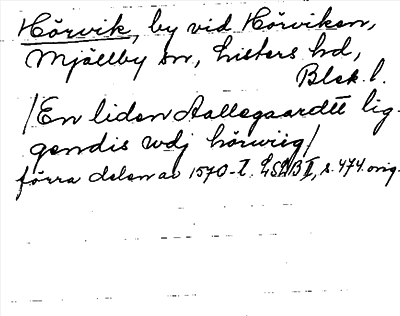 Hörvik, by vid Hörviken,
Mjällby sn, Listers hd,
Blek. l.
/En liden Aallegaardtt lig-
gendis wdj hörwiig/
förra delen av 1570-t. LSÄB II, s. 474. orig.